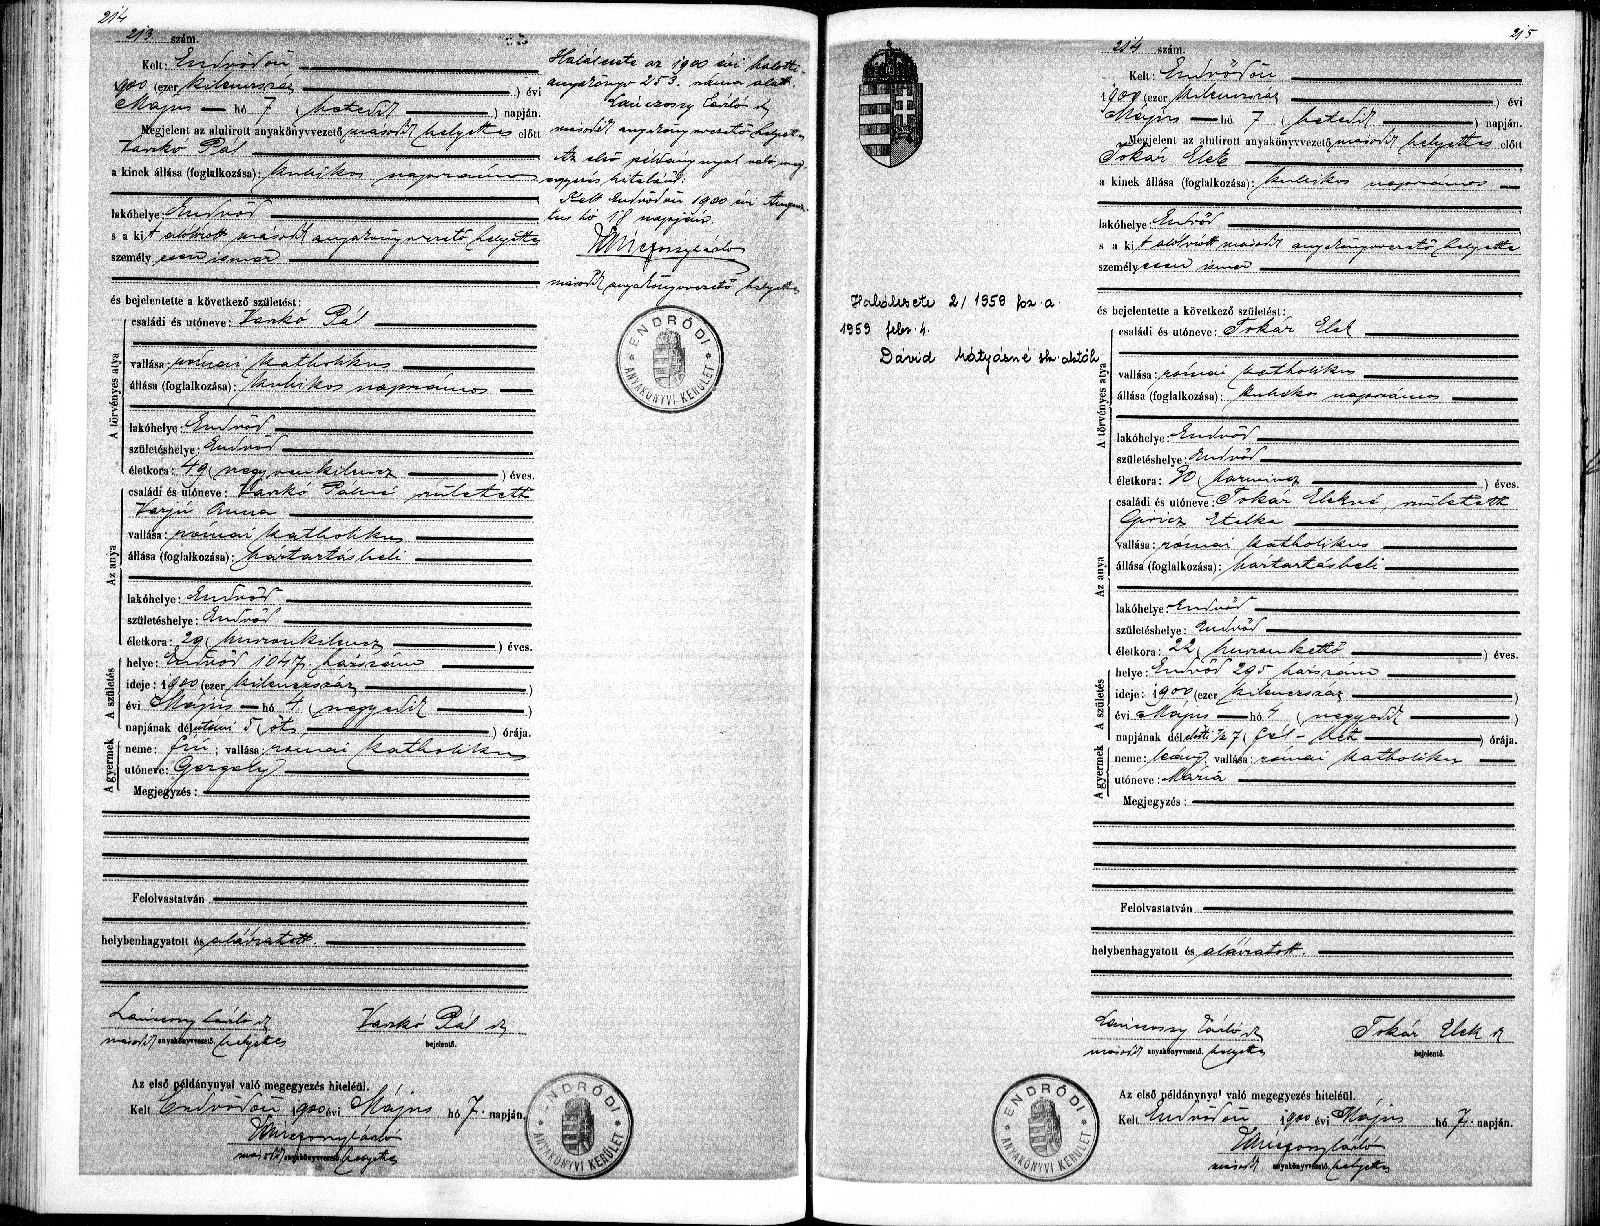 214
213 szám.
Kelt: Endrődön
1900 (ezer kilencszáz) évi
Május hó 7 (hetedik) napján.
Megjelent az alulirott anyakönyvvezető második helyettes előtt
Varkó Pál
a kinek állása (foglalkozása): kubikos napszámos
lakóhelye: Endrőd
s a kit alólirott második anyakönyvvezető helyettes
személyesen ismer
és bejelentette a következő születést:
A törvényes atya
családi és utóneve: Varkó Pál
vallása: római katholikus
állása (foglalkozása): kubikos napszámos
lakóhelye: Endrőd
születéshelye: Endrőd
életkora: 49 (negyvenkilencz) éves.
Az anya
családi és utóneve: Varkó Pálné született
Varjú Anna
vallása: római katholikus
állása (foglalkozása): háztartásbeli
lakóhelye: Endrőd
születéshelye: Endrőd
életkora: 29 (huszonkilencz) éves.
A születés
helye: Endrőd 1047. házszám
ideje: 1900 (ezer kilenczszáz)
évi Május hó 4 (negyedik)
napjának délutáni 5 (öt) órája.
A gyermek
neme: fiú; vallása: római katholikus
utóneve: Gergely
Megjegyzés:
Felolvastatván
helybenhagyatott és aláiratott.
Lánczossy László sk
második anyakönyvvezető helyettes
Varkó Pál sk
bejelentő.
Az első példánynyal való megegyezés hiteléül.
Kelt Endrődön 1900 évi Május hó 7. napján.
második anyakönyvvezető helyettes
ENDRŐDI
ANYAKÖNYVI KERÜLET
Halálesete az 1900 évi halotti
anyakönyv 253. száma alatt.
Lánczossy László sk
második anyakönyvvezető helyettes
Az első példánynyal való meg-
egyezés hiteléül.
Kelt Endrődön 1900 évi Augusz-
tus hó 18 napján
második anyakönyvvezető helyettes
ENDRŐDI
ANYAKÖNYVI KERÜLET
215
Halálesete 2/1959 fsz. a.
1959 febr. 4.
Dávid Mátyásné sk. aktóh
214 szám.
Kelt: Endrődön
1900 (ezer kilencszáz) évi
Május hó 7 (hetedik) napján.
Megjelent az alulirott anyakönyvvezető második helyettes előtt
Tokár Elek
a kinek állása (foglalkozása): kubikos napszámos
lakóhelye: Endrőd
s a kit alólirott második anyakönyvvezető helyettes
személyesen ismer
és bejelentette a következő születést:
A törvényes atya
családi és utóneve: Tokár Elek
vallása: római katholikus
állása (foglalkozása): kubikos napszámos
lakóhelye: Endrőd
születéshelye: Endrőd
életkora: 30 (harmincz) éves.
Az anya
családi és utóneve: Tokár Elekné, született
Etelka
vallása: római katholikus
állása (foglalkozása): háztartásbeli
lakóhelye: Endrőd
születéshelye: Endrőd
életkora: 22 (huszonkettő) éves.
A születés
helye: Endrőd 295 házszám
ideje: 1900 (ezer kilenczszáz)
évi Május hó 4 (negyedik)
napjának délelőtti 1/2 7 (fél-hét) órája.
A gyermek
neme: leány; vallása: római katholikus
utóneve: Mária
Megjegyzés:
Felolvastatván
helybenhagyatott és aláiratott.
Lánczossy László sk
második anyakönyvvezető, helyettes
Tokár Elek sk
bejelentő.
Az első példánynyal való megegyezés hiteléül.
Kelt Endrődön 1900 évi Május hó 7. napján.
második anyakönyvvezető, helyettes
ENDRŐDI
ANYAKÖNYVI KERÜLET